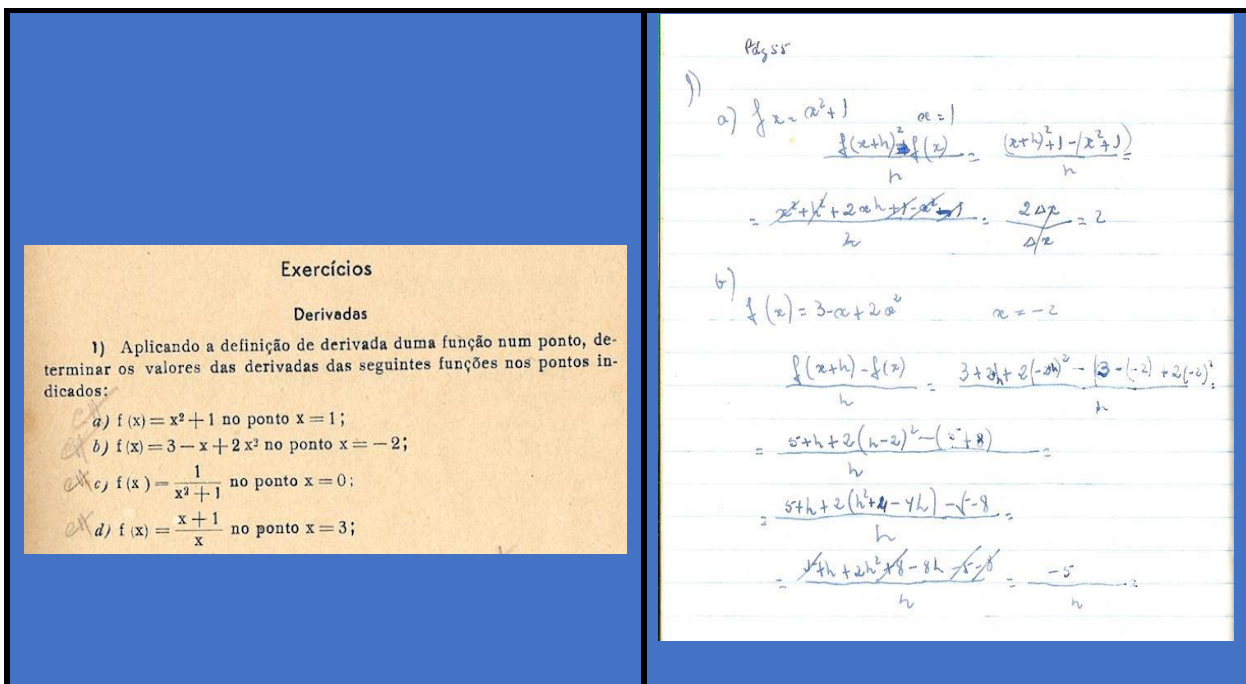 Exercícios
Derivadas
1) Aplicando a definição de derivada duma função num ponto, de-
terminar os valores das derivadas das seguintes funções nos pontos in-
dicados:
a) f (x) = x² + 1 no ponto x = 1;
b) f (x) = 3 — x + 2 x² no ponto x = — 2;
c) f (x) = 1/(x² + 1) no ponto x = 0;
d) f (x) = (x + 1)/x no ponto x = 3;
Pág 55
1)
a) f x = x² + 1 x = 1
(f(x+h)² - f(x))/h = ((x+h)² + 1 - (x² + 1))/h =
= (x² + h² + 2xh + 1 - x² - 1)/h = 2Δx/Δx = 2
b)
f (x) = 3 - x + 2x² x = -2
(f(x+h) - f(x))/h = (3 + 2h + 2(-2h)² - (3 - (-2) + 2(-2)²)/h =
= (5 + h + 2(h-2)² - (5 + 8))/h =
= (5 + h + 2(h² + 4 - 4h) - 5 - 8)/h =
= (5 + h + 2h² + 8 - 8h - 5 - 8)/h = -5/h =